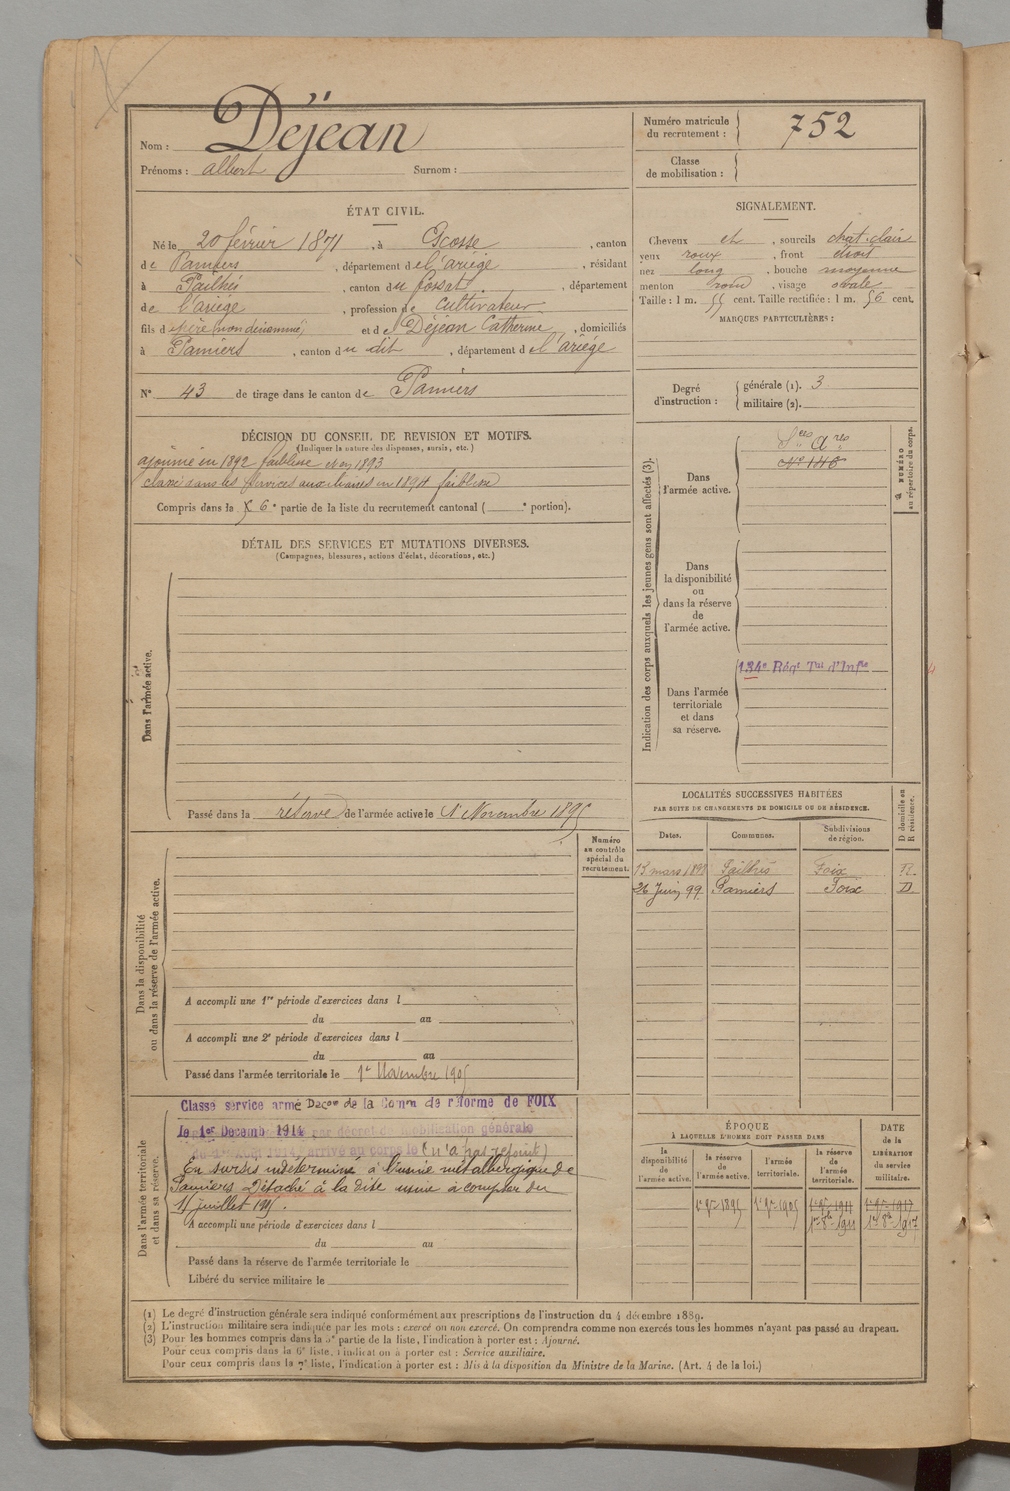 Nom : Déjean
Prénoms : albert Surnom :
Numéro matricule du recrutement : 752
Classe de mobilisation :
ÉTAT CIVIL.
Né le 20 février 1871, à Escosse, canton
de Pamiers, département de l'ariége, résidant
à Pailhès, canton du fossat, département
de l'ariége, profession de cultivateur
fils de père non dénommé, et de Déjean Catherine, domiciliés
à Pamiers, canton du dit, département de l'ariége
N° 43 de tirage dans le canton de Pamiers
SIGNALEMENT.
Cheveux et, sourcils chat. clair
yeux roux, front droit
nez long, bouche moyenne
menton rond, visage ovale
Taille : 1 m. 55 cent. Taille rectifiée : 1 m. 56 cent.
MARQUES PARTICULIÈRES :
Degré d'instruction : générale (1). 3
militaire (2).
DÉCISION DU CONSEIL DE REVISION ET MOTIFS.
(Indiquer la nature des dispenses, sursis, etc.)
ajourné en 1892 faiblesse et en 1893
classé dans les services auxiliaires en 1894 faiblesse
Compris dans la 6e partie de la liste du recrutement cantonal ( e portion).
DÉTAIL DES SERVICES ET MUTATIONS DIVERSES.
(Campagnes, blessures, actions d'éclat, décorations, etc.)
Dans l'armée active.
Passé dans la réserve de l'armée active le 1er Novembre 1895
Indication des corps auxquels les jeunes gens sont affectés (3).
NUMÉRO au répertoire du corps.
Dans l'armée active.
Sces Ares
N° 148
Dans la disponibilité ou dans la réserve de l'armée active.
Dans l'armée territoriale et dans sa réserve.
134e Régt Tal d'Infie
LOCALITÉS SUCCESSIVES HABITÉES
PAR SUITE DE CHANGEMENTS DE DOMICILE OU DE RÉSIDENCE.
Dates. Communes. Subdivisions de région. D domicile ou R résidence.
Pailhès Foix R.
26 Juin 99 Pamiers Foix D
Numéro au contrôle spécial du recrutement.
Dans la disponibilité ou dans la réserve de l'armée active.
A accompli une 1re période d'exercices dans l
du au
A accompli une 2e période d'exercices dans l
du au
Passé dans l'armée territoriale le 1er Novembre 1905
Dans l'armée territoriale et dans sa réserve.
Classé service armé Dacon de la Comm de réforme de FOIX
le 1er Decemb 1914 par décret de mobilisation générale
arrivé au corps le (n'a pas rejoint)
En sursis indéterminé à l'usine métallurgique de
Pamiers Détaché à la dite usine à compter du
juillet
A accompli une période d'exercices dans l
du au
Passé dans la réserve de l'armée territoriale le
Libéré du service militaire le
ÉPOQUE
À LAQUELLE L'HOMME DOIT PASSER DANS
la disponibilité de l'armée active.
la réserve de l'armée active.
l'armée territoriale.
la réserve de l'armée territoriale.
DATE de la LIBÉRATION du service militaire.
1er 9bre 1895 1er 9bre 1905 1er 9bre 1911 1er 9bre 1917
1er 8bre 1911 1er 8bre 1917
(1) Le degré d'instruction générale sera indiqué conformément aux prescriptions de l'instruction du 4 décembre 1889.
(2) L'instruction militaire sera indiquée par les mots : exercé ou non exercé. On comprendra comme non exercés tous les hommes n'ayant pas passé au drapeau.
(3) Pour les hommes compris dans la 5e partie de la liste, l'indication à porter est : Ajourné.
Pour ceux compris dans la 6e liste, l'indication à porter est : Service auxiliaire.
Pour ceux compris dans la 7e liste, l'indication à porter est : Mis à la disposition du Ministre de la Marine. (Art. 4 de la loi.)